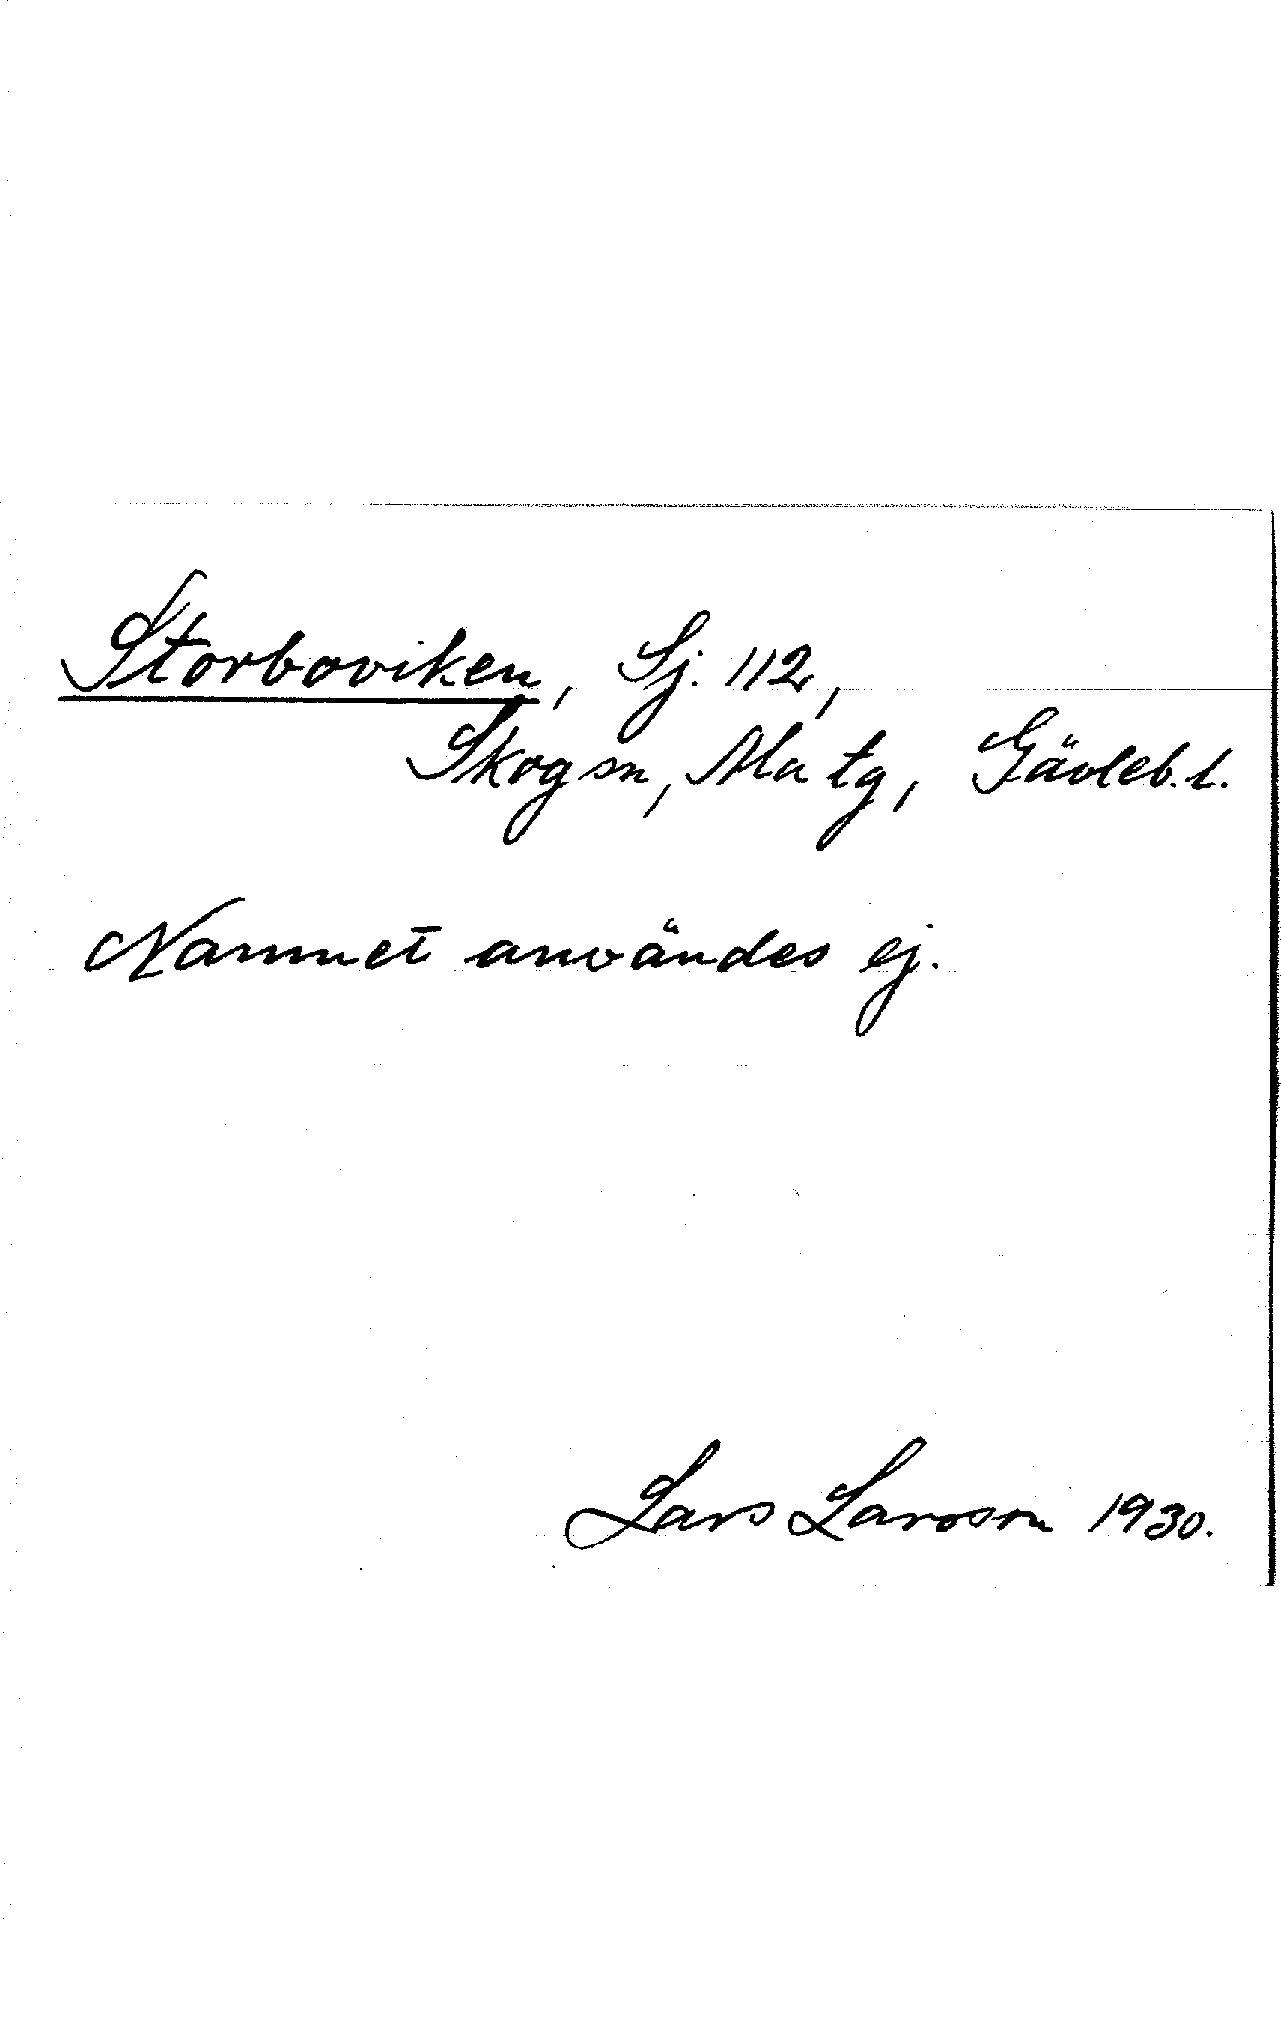 Storboviken, Sj. 112,
Skog sn, Ala tg, Gävleb. l.
Namnet användes ej.
Lars Larsson 1930.